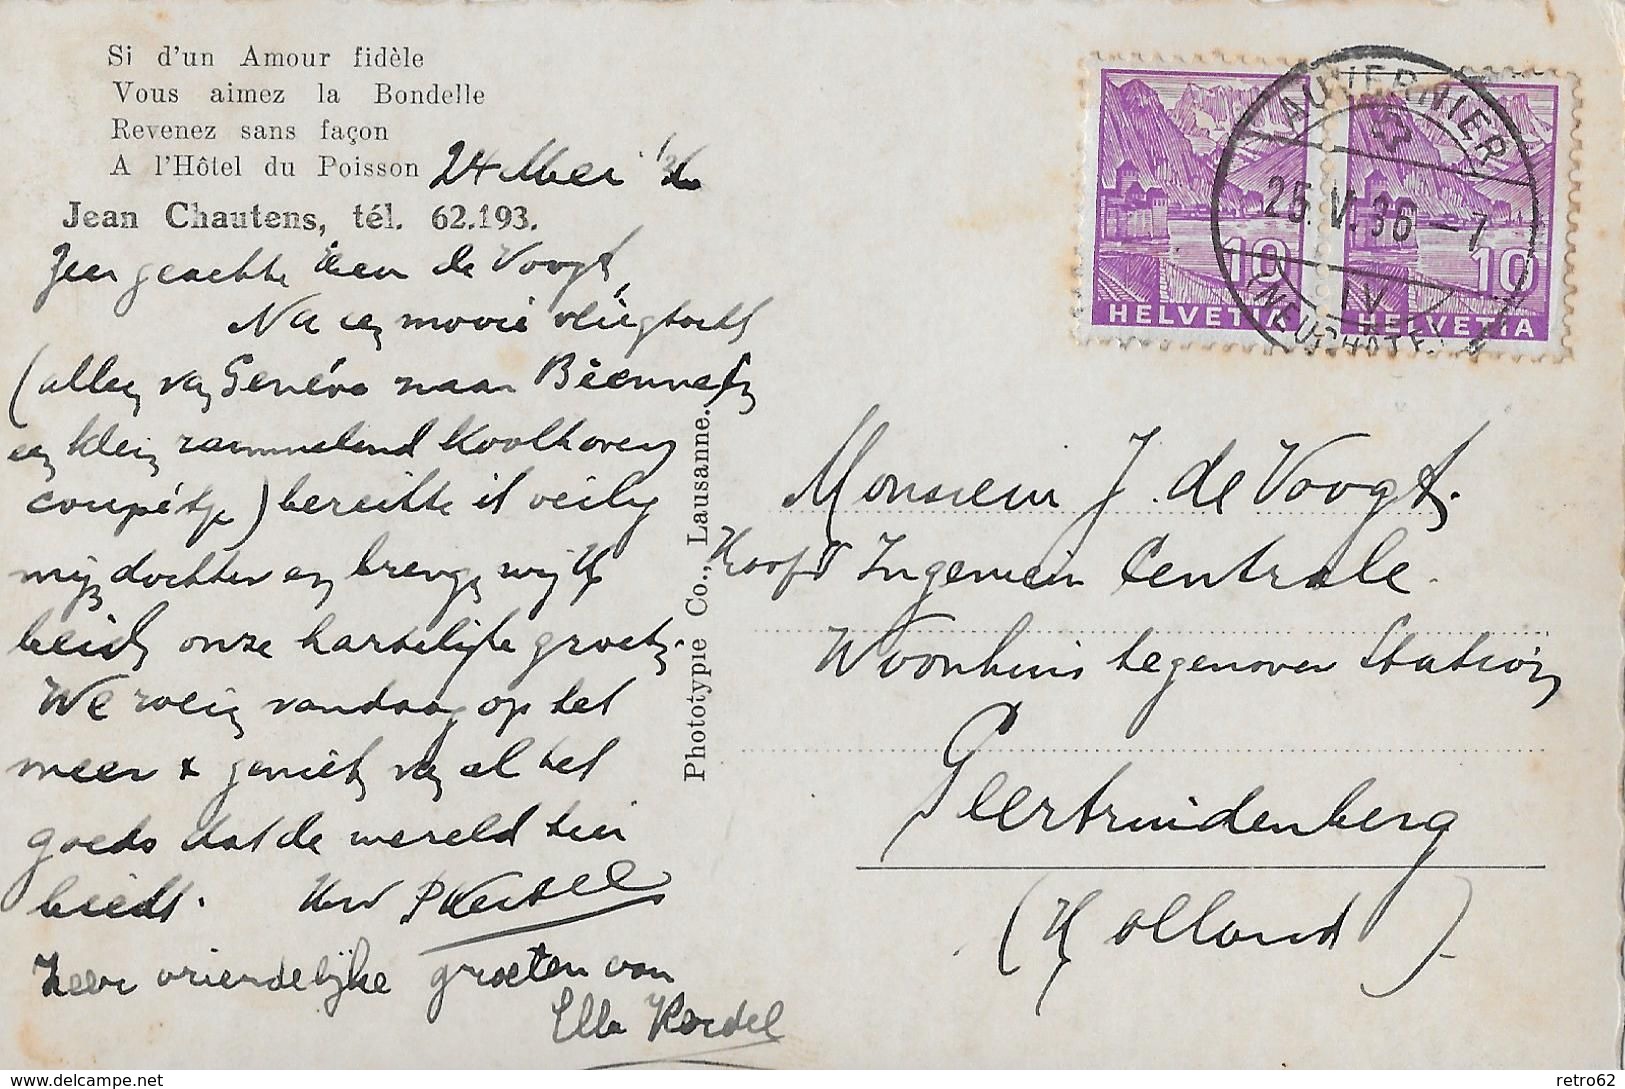 Si d'un Amour fidèle
Vous aimez la Bondelle
Revenez sans façon
A l'Hôtel du Poisson
24 Mei '36
Jean Chautens, tél. 62.193.
Zeer geachte Heer de Voogt,
Na een mooie vliegtocht
(alleen van Genéve naar Bienne in
een klein rammelend Koolhoven
coupétje) bereikte ik veilig
mijn dochter en brengen wij U
beide onze hartelijke groeten.
We zeilen vandaag op het
meer & genieten van al het
goeds dat de wereld hier
biedt. Uw
Zeer vriendelijke groeten van
Ella
Phototypie Co., Lausanne.
HELVETIA 10
HELVETIA 10
AUVERNIER
25.V.36-7
IV
(NEUCHÂTEL)
Monsieur J. de Voogt.
Hoofd Ingenieur Centrale.
Woonhuis tegenover Station
Geertruidenberg
(Holland)
delcampe.net
retro62